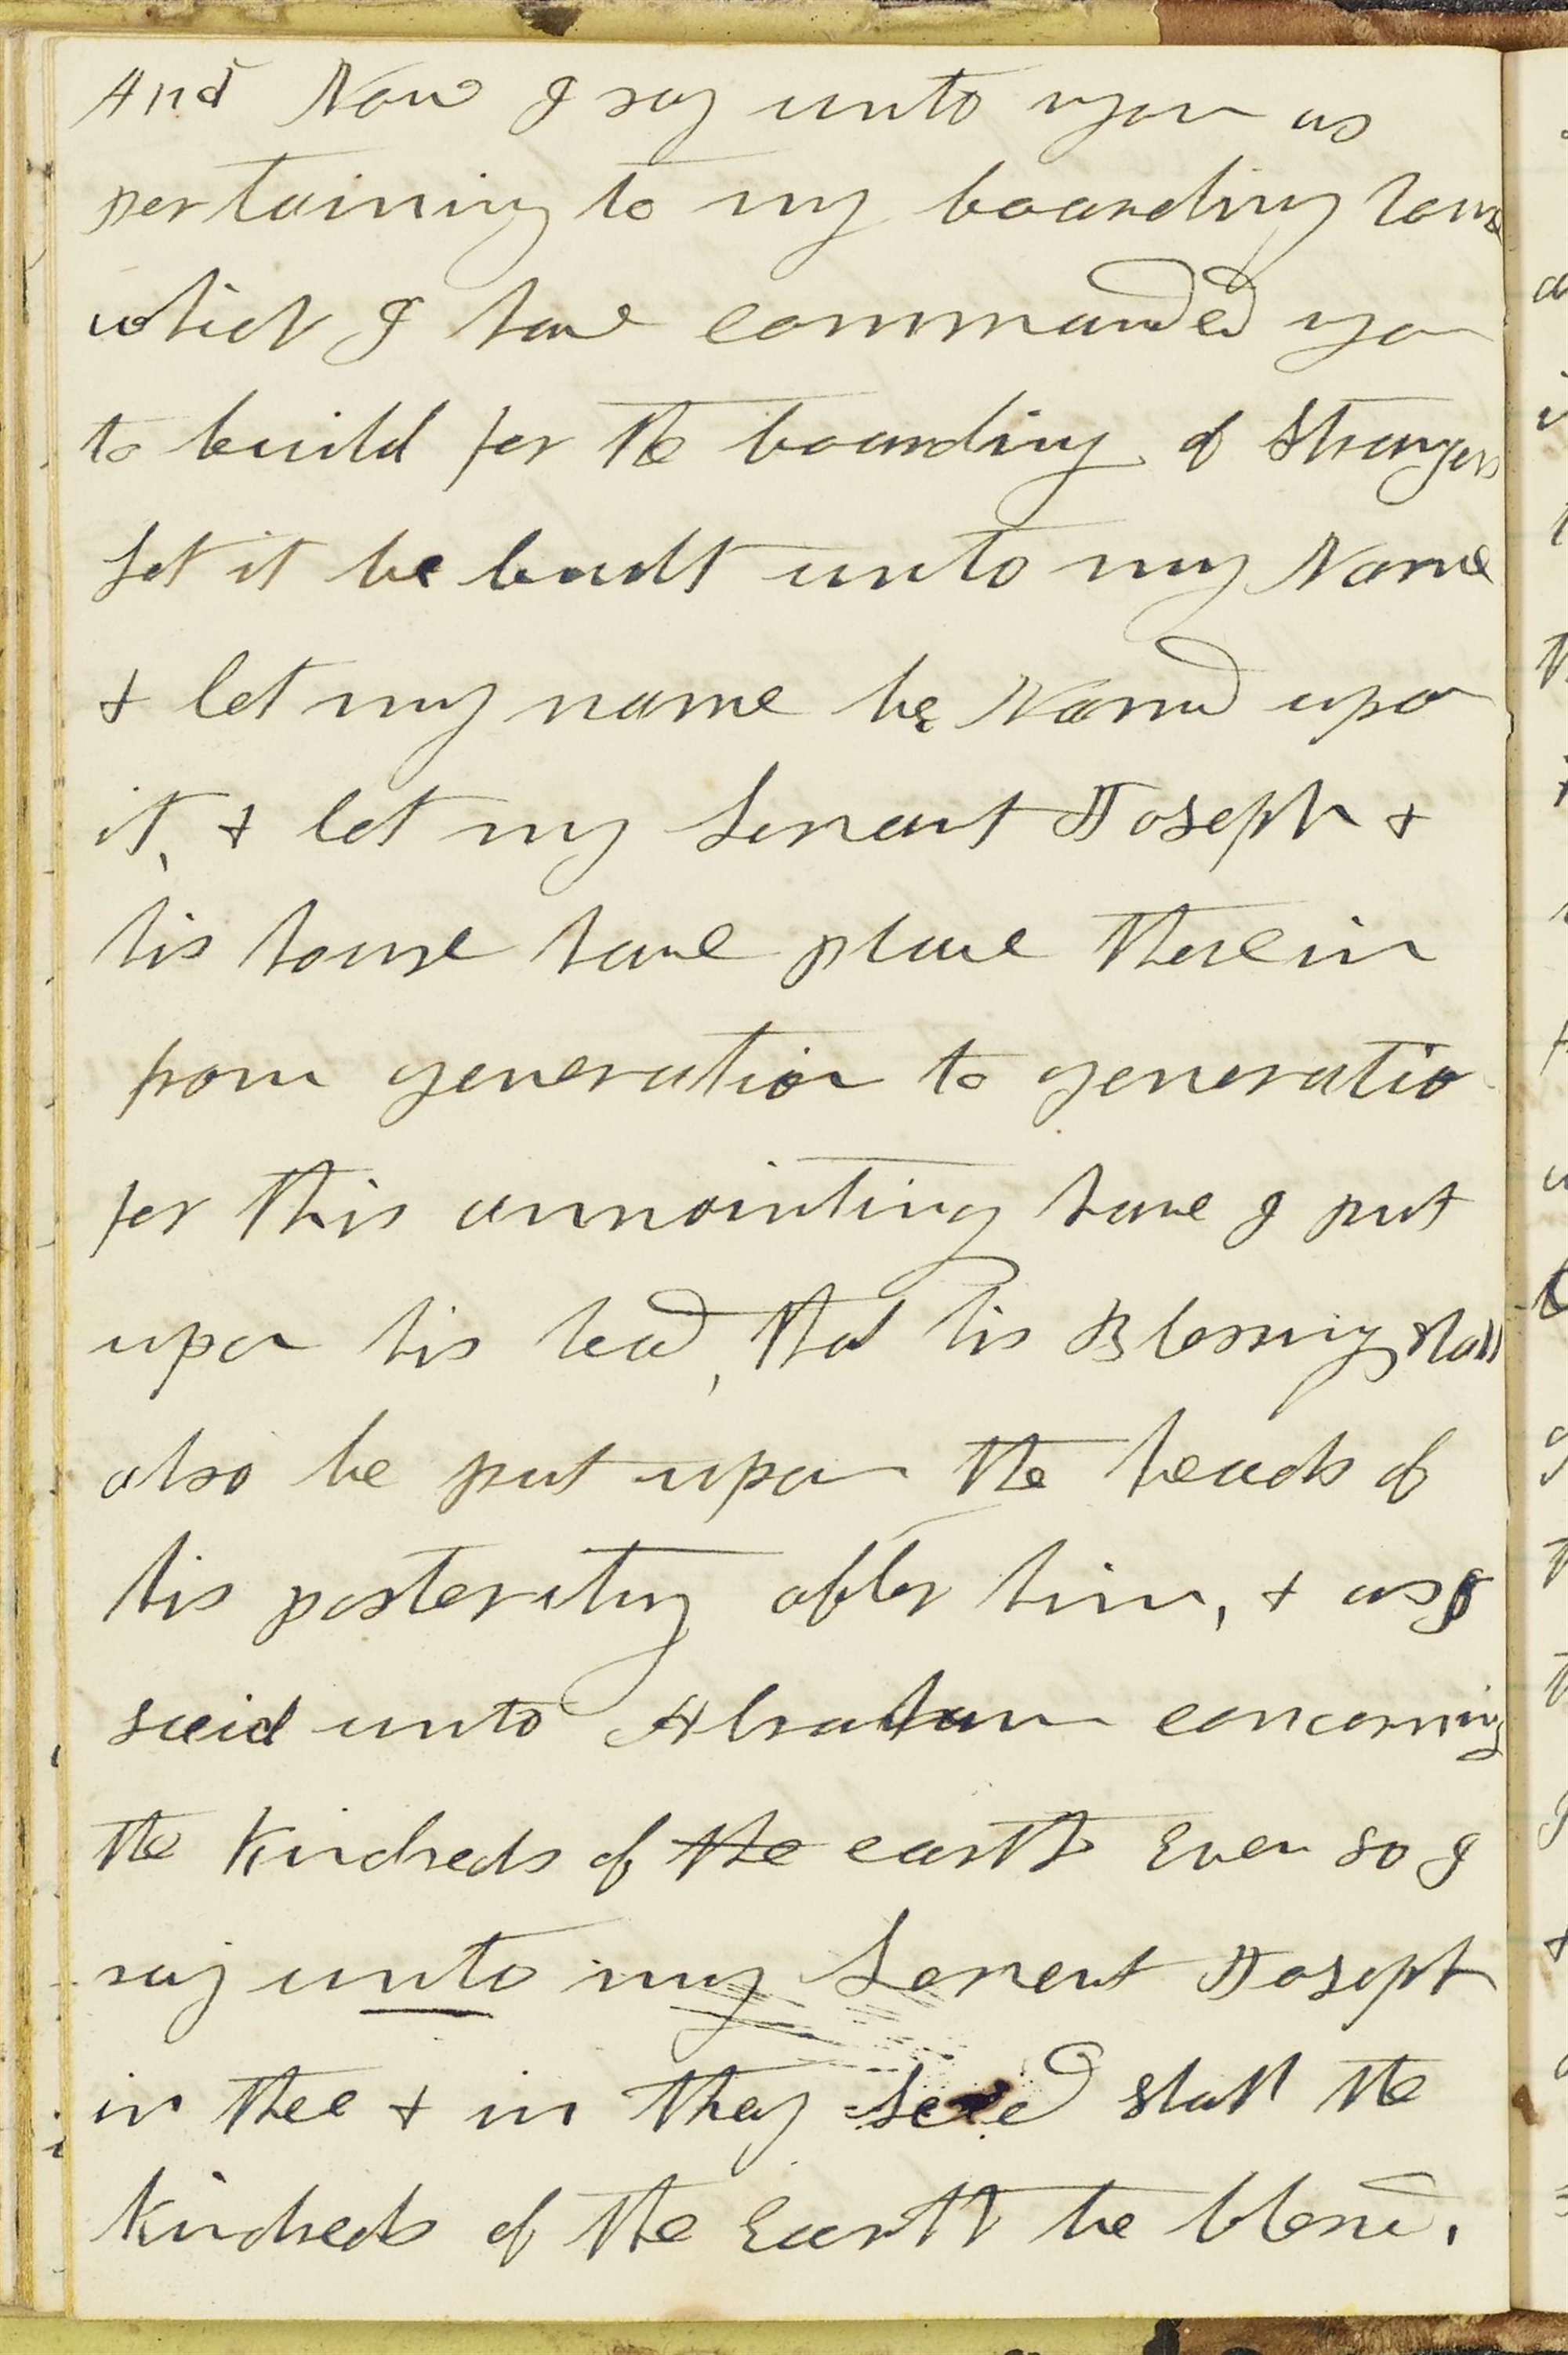 And Now I say unto you as
pertaining to my boarding house
which I have commanded you
to build for the boarding of Strangers
Let it be built unto my Name
& let my name be Named upon
it, & let my Servant Joseph &
his house have place therein
from generation to generation
for this annointing have I put
upon his head, that his Blessing shall
also be put upon the heads of
his posterity after him, & as I
said unto Abraham concerning
the Kindreds of the earth Even so I
say unto my Servent Joseph
in thee & in thy seed shall the
Kindreds of the Earth be blessed.